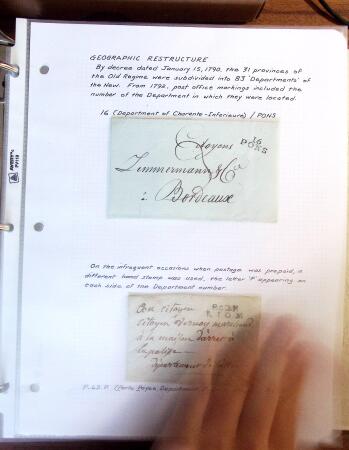 GEOGRAPHIC RESTRUCTURE
By decree dated January 15, 1790, the 31 provinces of
the Old Regime were subdivided into 83 'Departments' of
the New. From 1792, post office markings included the
number of the Department in which they were located.
16 (Department of Charente-Inferieure) / PONS
Citoyens
16
PONS
Zimmermann & Co
à Bordeaux
On the infrequent occasions when postage was prepaid, a
different hand stamp was used, the letter 'P' appearing on
each side of the Department number.
P 63 P
RIOM
citoyen
à la maison d'arret
P. 63. P. (Ports Payes, Department